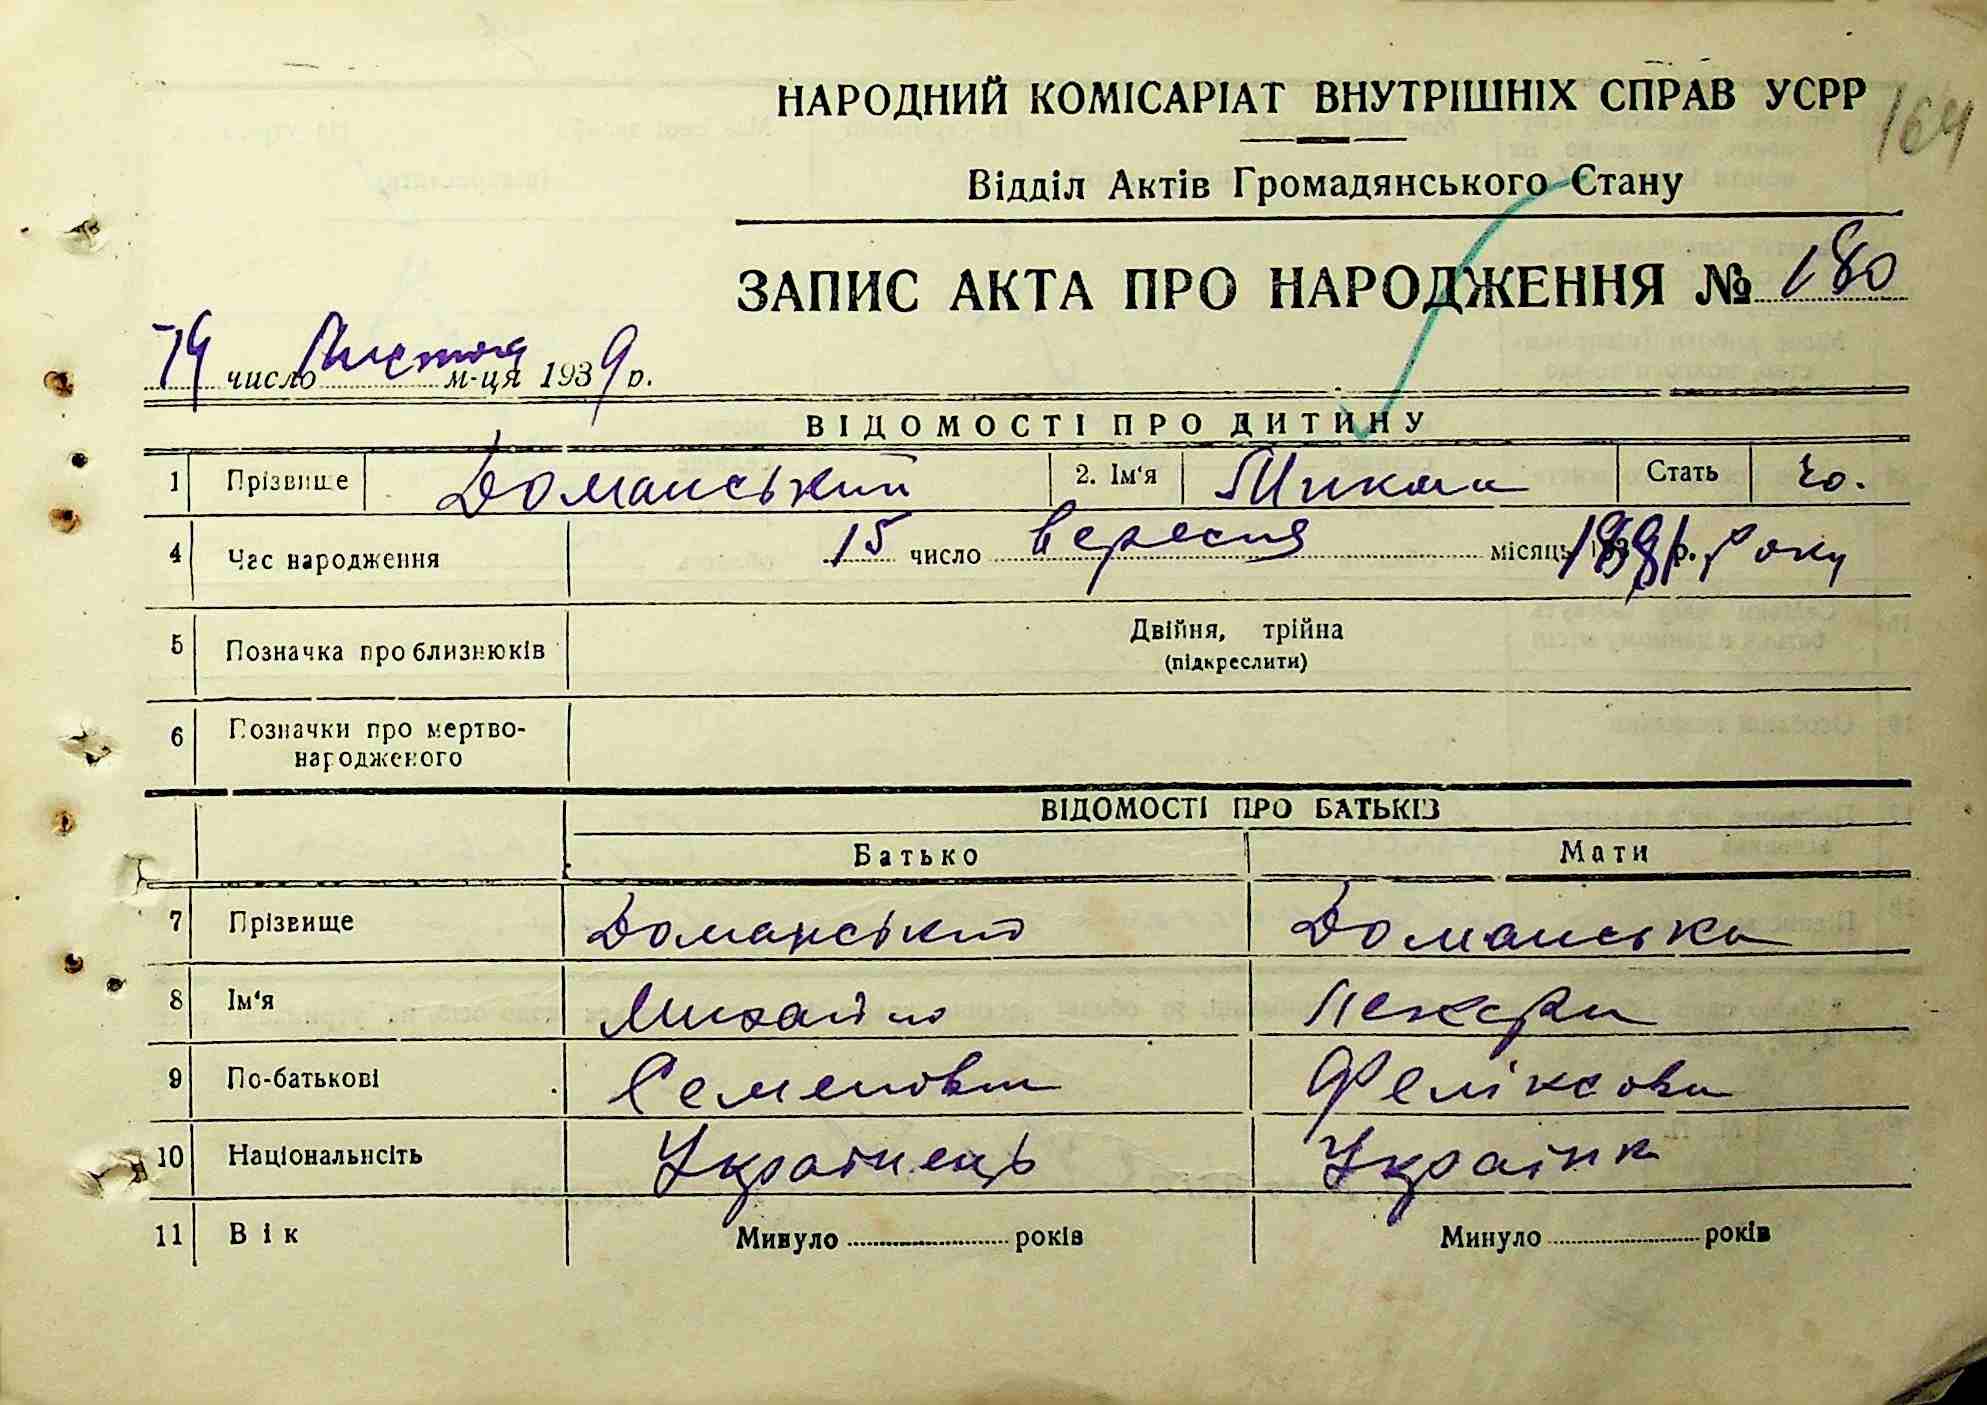 НАРОДНИЙ КОМІСАРІАТ ВНУТРІШНІХ СПРАВ УСРР
164
Відділ Актів Громадянського Стану
ЗАПИС АКТА ПРО НАРОДЖЕННЯ № 180
14 число м-ця 1939 р.
ВІДОМОСТІ ПРО ДИТИНУ
1 Прізвище Доманський 2. Ім'я Микола Стать чо.
4 Час народження 15 число вересня місяць р. року
5 Позначка про близнюків Двійня, трійна
(підкреслити)
6 Позначки про мертво-
народженого
ВІДОМОСТІ ПРО БАТЬКІВ
Батько Мати
7 Прізвище Доманський Доманська
8 Ім'я Михайло
9 По-батькові Семенович Феліксовна
10 Національність Українець Українка
11 Вік Минуло років Минуло років